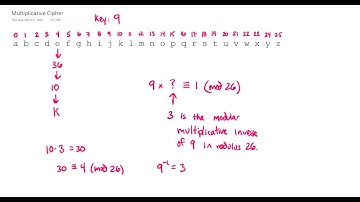 Multiplicative Cipher
Key: 9
0 1 2 3 4 5 6 7 8 9 10 11 12 13 14 15 16 17 18 19 20 21 22 23 24 25
a b c d e f g h i j k l m n o p q r s t u v w x y z
36
10
K
9 × ? ≡ 1 (mod 26)
3 is the modular
multiplicative inverse
of 9 in modulus 26.
10·3 = 30
30 ≡ 4 (mod 26)
9⁻¹ = 3